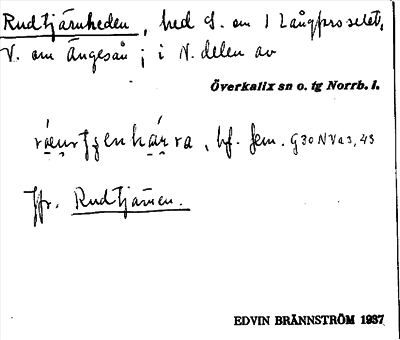 Rudtjärnheden, hed S. om 1 Långfors elet,
V. om Ängeså; i N. delen av
Överkalix sn o. tg Norrb. l.
hf. fem. G30NV a3, 43
Jfr. Rudtjärnen.
EDVIN BRÄNNSTRÖM 1937